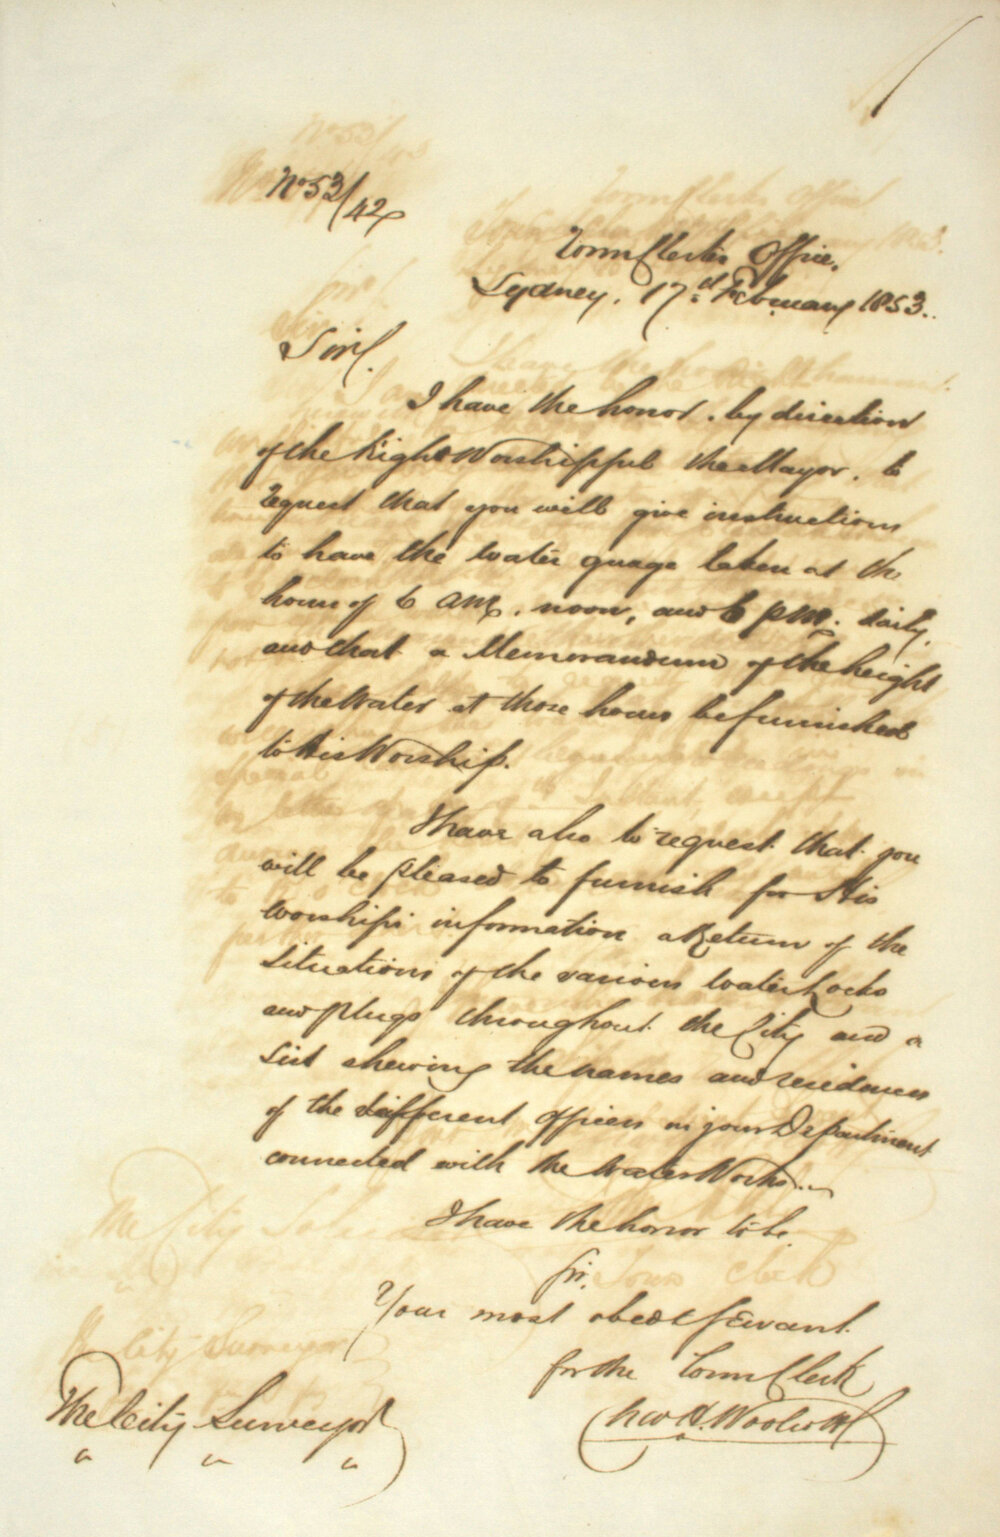 No 53/42
Town Clerks Office,
Sydney, 17th February 1853.
Sir,
I have the honor, by direction
of the Right Worshipful the Mayor, to
request that you will give instructions
to have the water guage taken at the
hour of 6 am, noon, and 6 pm. daily,
and that a Memorandum of the height
of the Water at those hours be furnished
to His Worship.
I have also to request that you
will be pleased to furnish for His
Worship's information a Return of the
Situations of the various Water Cocks
and plugs throughout the City and a
List shewing the names and residences
of the different officers in your Department
connected with the Water Works.
I have the honor to be,
Sir,
Your most obedt Servant
for the Town Clerk
H. Woolcott
The City Surveyor
" " "